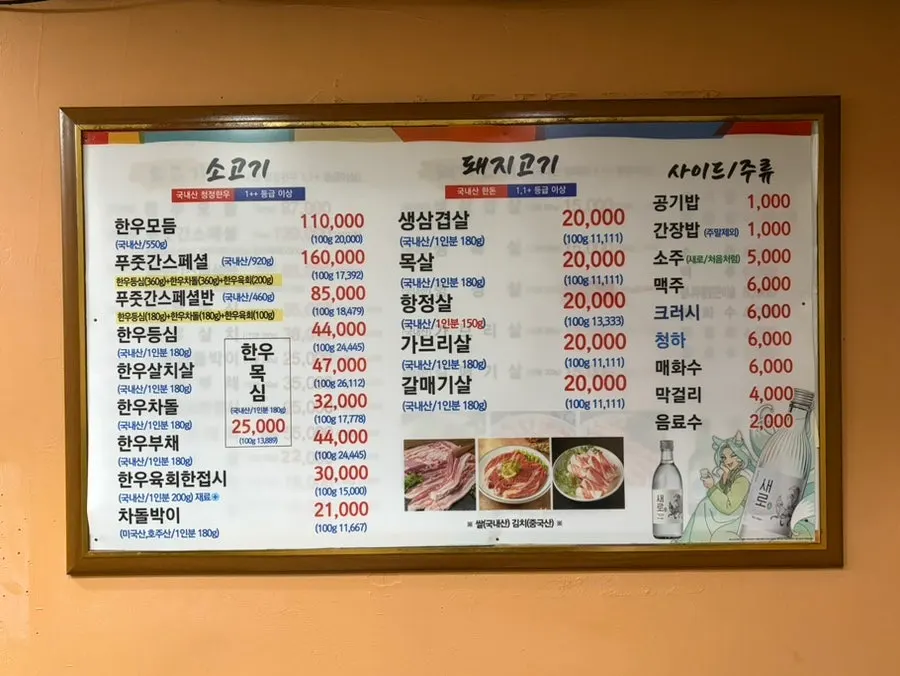 소고기
국내산 청정한우 1++ 등급 이상
한우모듬 110,000
(국내산/550g) (100g 20,000)
푸줏간스페셜 (국내산/920g) 160,000
한우등심(360g)+한우차돌(360g)+한우육회(200g) (100g 17,392)
푸줏간스페셜반 (국내산/460g) 85,000
한우등심(180g)+한우차돌(180g)+한우육회(100g) (100g 18,479)
한우등심 44,000
(국내산/1인분 180g) (100g 24,445)
한우살치살 47,000
(국내산/1인분 180g) (100g 26,112)
한우차돌 32,000
(국내산/1인분 180g) (100g 17,778)
한우부채 44,000
(국내산/1인분 180g) (100g 24,445)
한우육회한접시 30,000
(국내산/1인분 200g) 재료 (100g 15,000)
차돌박이 21,000
(미국산,호주산/1인분 180g) (100g 11,667)
한우
목
심
(국내산/1인분 180g)
25,000
(100g 13,889)
돼지고기
국내산 한돈 1,1+ 등급 이상
생삼겹살 20,000
(국내산/1인분 180g) (100g 11,111)
목살 20,000
(국내산/1인분 180g) (100g 11,111)
항정살 20,000
(국내산/1인분 150g) (100g 13,333)
가브리살 20,000
(국내산/1인분 180g) (100g 11,111)
갈매기살 20,000
(국내산/1인분 180g) (100g 11,111)
※ 쌀(국내산) 김치(중국산) ※
사이드/주류
공기밥 1,000
간장밥 (주말제외) 1,000
소주 (새로/처음처럼) 5,000
맥주 6,000
크러시 6,000
청하 6,000
매화수 6,000
막걸리 4,000
음료수 2,000
새로
새로